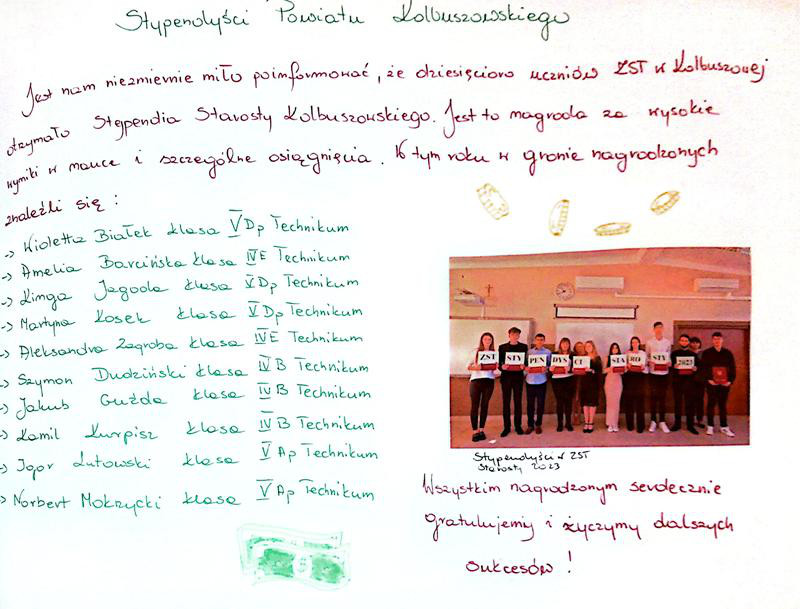 Stypendyści Powiatu Kolbuszowskiego
Jest nam niezmiernie miło poinformować, że dziesięcioro uczniów ZST w Kolbuszowej
otrzymało Stypendia Starosty Kolbuszowskiego. Jest to nagroda za wysokie
wyniki w nauce i szczególne osiągnięcia. W tym roku w gronie nagrodzonych
znaleźli się:
-> Wioletta Białek klasa V Dp Technikum
-> Amelia Barcińska klasa IV E Technikum
-> Kinga Jagoda klasa V Dp Technikum
-> Martyna Kosek klasa V Dp Technikum
-> Aleksandra Zagroba klasa IV E Technikum
-> Szymon Dudziński klasa IV B Technikum
-> Jakub Guzda klasa IV B Technikum
-> Kamil Kurpisz klasa IV B Technikum
-> Igor Lutowski klasa V Ap Technikum
-> Norbert Mokrzycki klasa V Ap Technikum
ZST STY PEN DYŚ CI STA RO STY 2023
Stypendyści w ZST
Starosty 2023
Wszystkim nagrodzonym serdecznie
gratulujemy i życzymy dalszych
sukcesów!